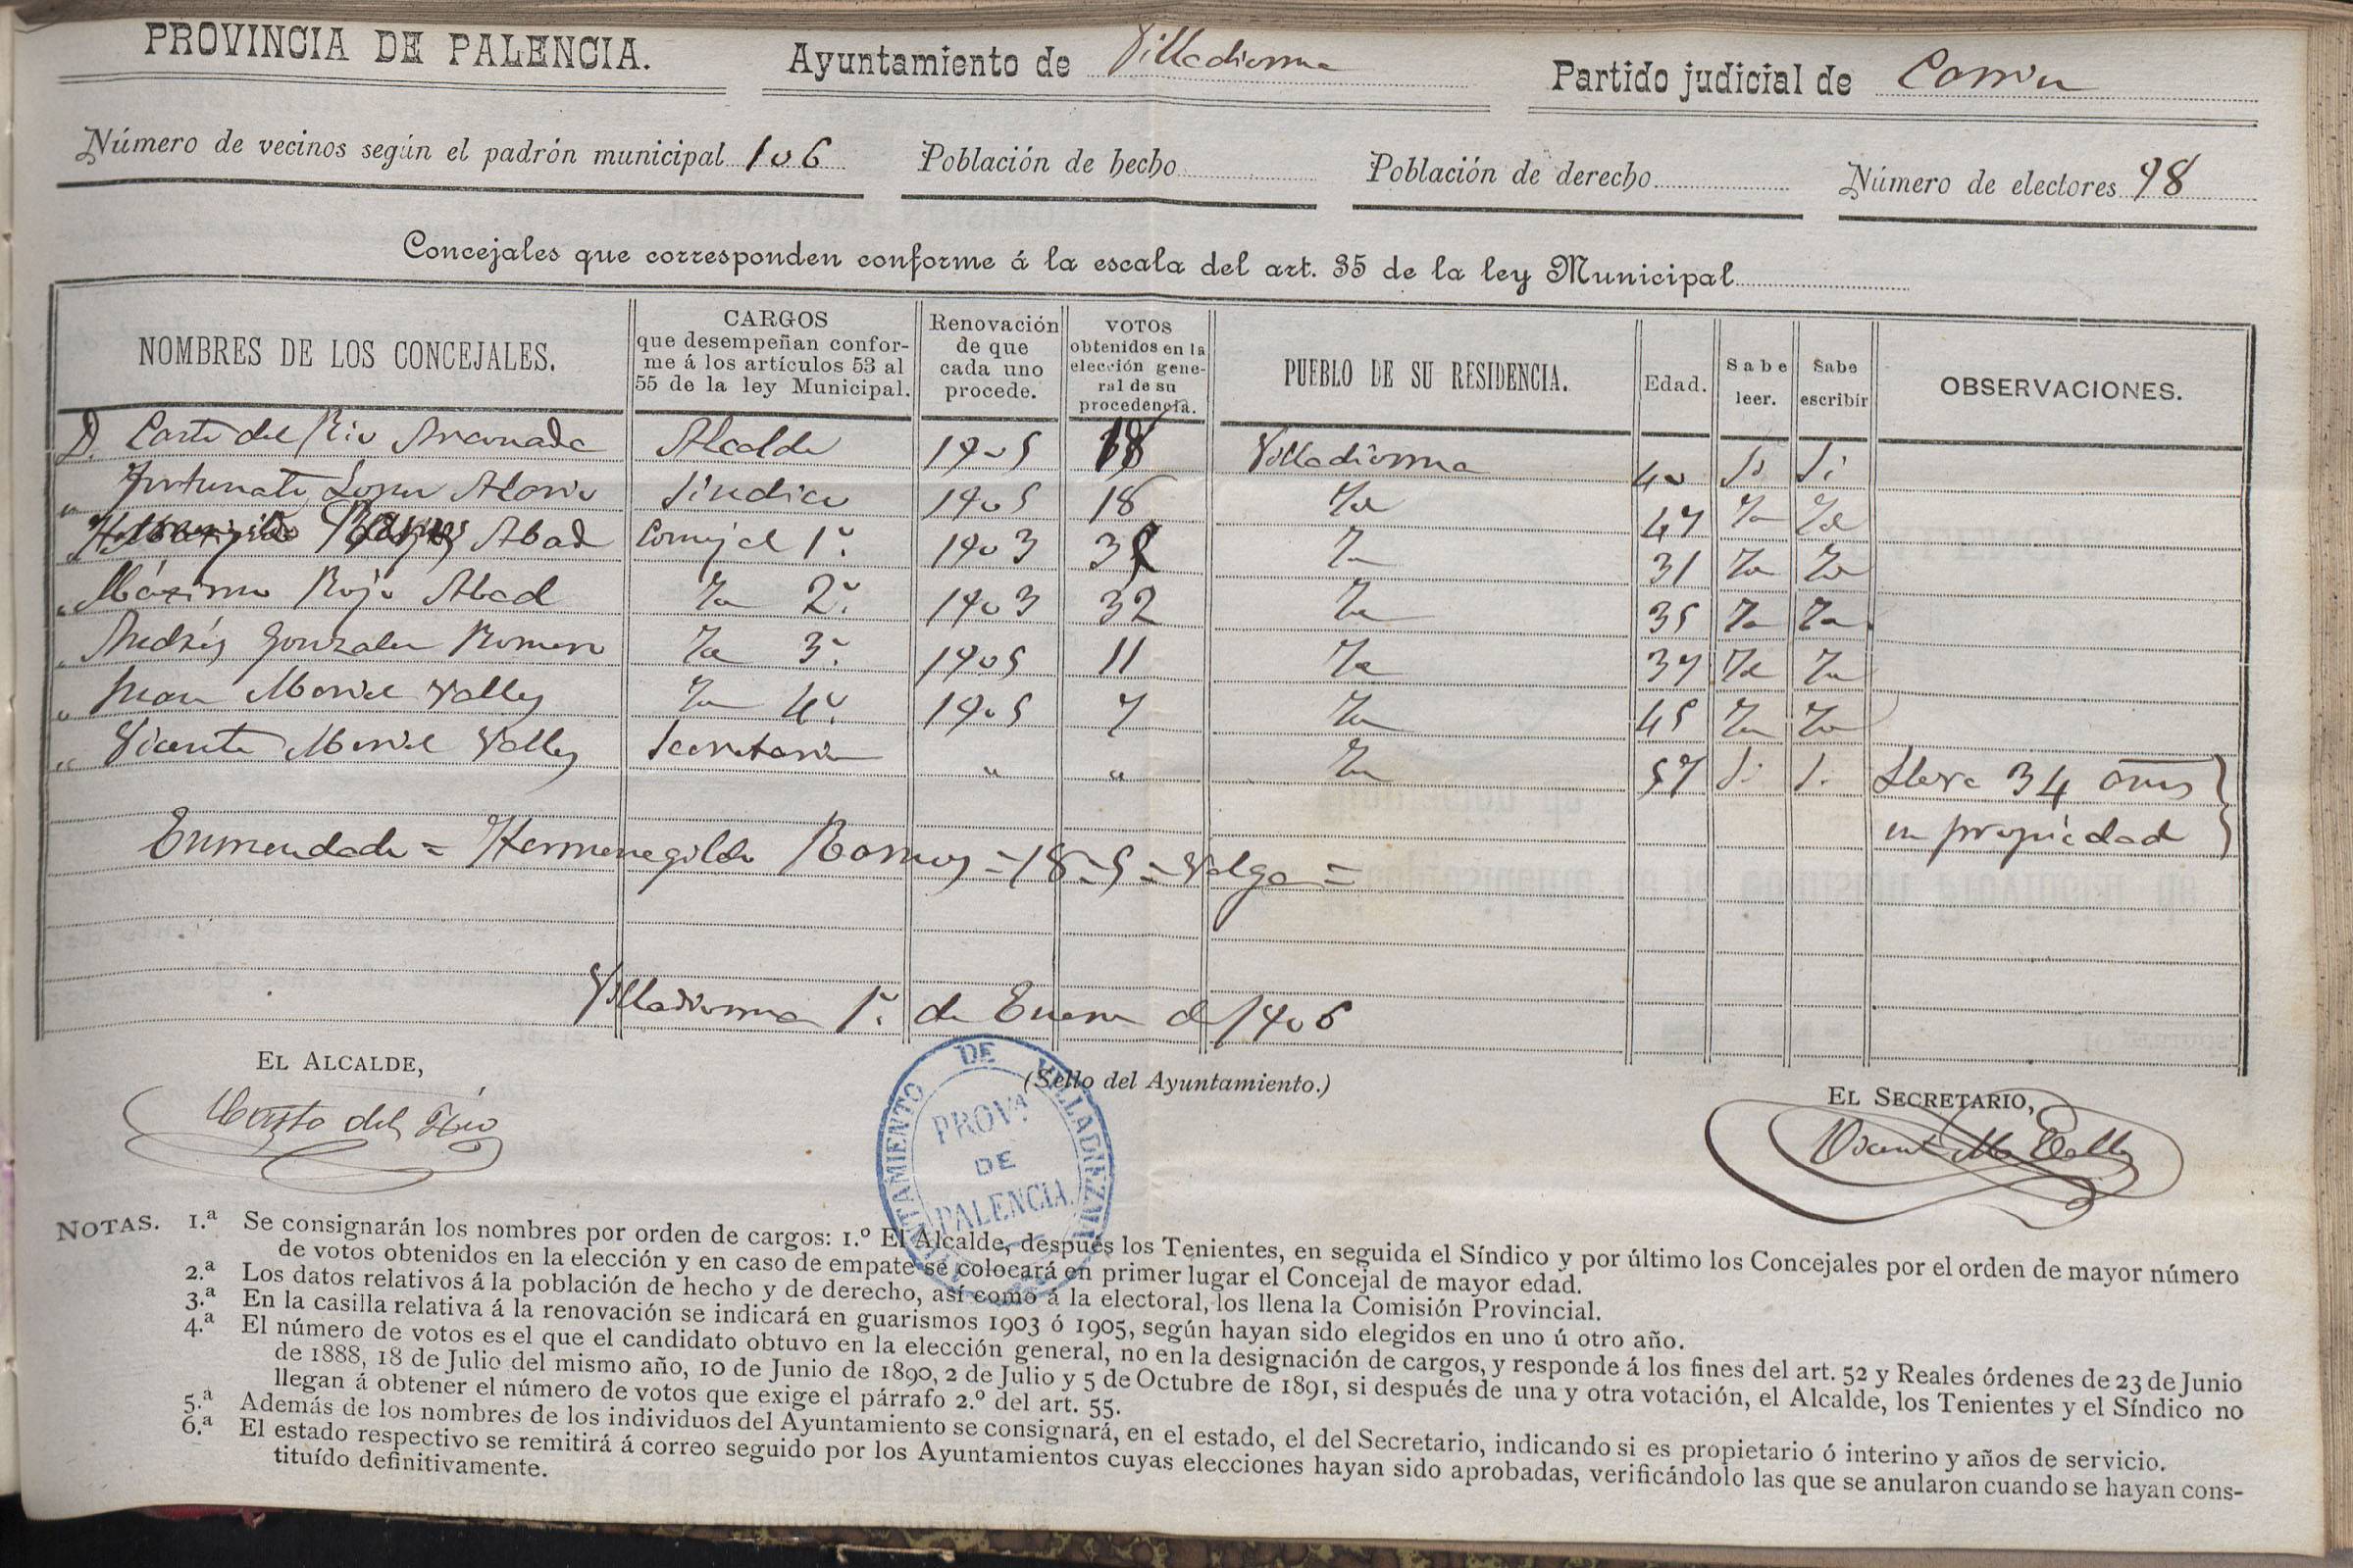 PROVINCIA DE PALENCIA. Ayuntamiento de Villadiezma Partido judicial de Carrion
Número de vecinos según el padrón municipal 106 Población de hecho Población de derecho Número de electores 98
Concejales que corresponden conforme á la escala del art. 35 de la ley Municipal
NOMBRES DE LOS CONCEJALES. CARGOS que desempeñan conforme á los artículos 53 al 55 de la ley Municipal. Renovación de que cada uno procede. VOTOS obtenidos en la elección general de su procedencia. PUEBLO DE SU RESIDENCIA. Edad. Sabe leer. Sabe escribir OBSERVACIONES.
D. Casto del Rio Alcalde 1905 18 Villadiezma 40 Si Si
„ Fortunato Lopez Sindico 1905 18 Id 47 Id Id
„ Hermenegildo Ramos Abad Concejal 1º. 1903 35 Id 31 Id Id
„ Máximo Rojo Abad Id 2º. 1903 32 Id 35 Id Id
„ Andrés Gonzalez Romero Id 3º. 1905 11 Id 37 Id Id
„ Juan Moriel Valles Id 4º. 1905 7 Id 45 Id Id
„ Vicente Moriel Valles Secretario „ „ Id 57 Si Si Lleva 34 años
en propiedad
Enmendado = Hermenegildo Ramos = 18 = 5 = Valga =
Villadiezma 1º. de Enero de 1906
EL ALCALDE,
(Sello del Ayuntamiento.)
EL SECRETARIO,
Casto del Rio
AYUNTAMIENTO DE VILLADIEZMA
PROVª
DE
PALENCIA
Vicente Mo Valles
NOTAS. 1.ª Se consignarán los nombres por orden de cargos: 1.º El Alcalde, después los Tenientes, en seguida el Síndico y por último los Concejales por el orden de mayor número
de votos obtenidos en la elección y en caso de empate se colocará en primer lugar el Concejal de mayor edad.
2.ª Los datos relativos á la población de hecho y de derecho, así como á la electoral, los llena la Comisión Provincial.
3.ª En la casilla relativa á la renovación se indicará en guarismos 1903 ó 1905, según hayan sido elegidos en uno ú otro año.
4.ª El número de votos es el que el candidato obtuvo en la elección general, no en la designación de cargos, y responde á los fines del art. 52 y Reales órdenes de 23 de Junio
de 1888, 18 de Julio del mismo año, 10 de Junio de 1890, 2 de Julio y 5 de Octubre de 1891, si después de una y otra votación, el Alcalde, los Tenientes y el Síndico no
llegan á obtener el número de votos que exige el párrafo 2.º del art. 55.
5.ª Además de los nombres de los individuos del Ayuntamiento se consignará, en el estado, el del Secretario, indicando si es propietario ó interino y años de servicio.
6.ª El estado respectivo se remitirá á correo seguido por los Ayuntamientos cuyas elecciones hayan sido aprobadas, verificándolo las que se anularon cuando se hayan cons-
tituído definitivamente.